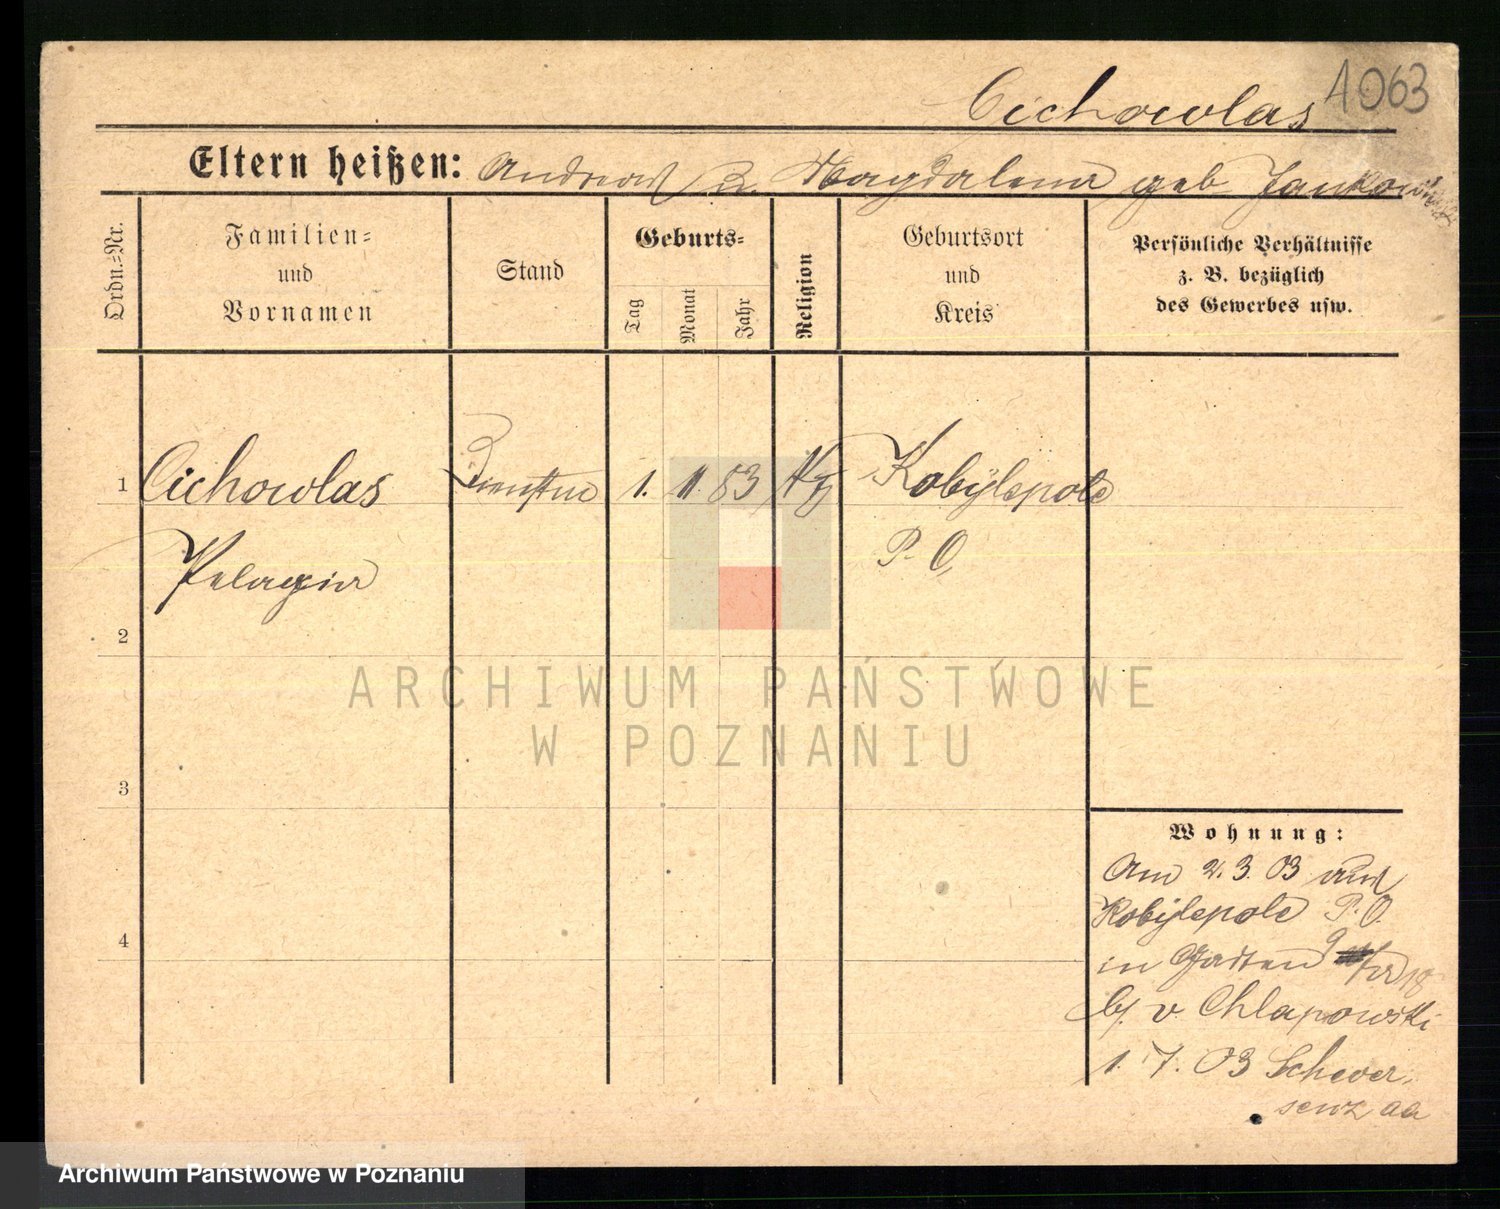 Cichowlas 1063
Eltern heißen: Andreas u. Magdalena geb
Ordn.=Nr.
Familien=
und
Vornamen
Stand
Geburts=
Tag
Monat
Jahr
Religion
Geburtsort
und
Kreis
Persönliche Verhältnisse
z. B. bezüglich
des Gewerbes usw.
1 Cichowlas 1. 11. 83 Kobylepole
Pelagia P. O.
2
3
4
Wohnung:
Am 2. 3. 03 aus
Kobylepole P. O.
in
b/ v. Chlapowski
1. 7. 03
ARCHIWUM PAŃSTWOWE
W POZNANIU
Archiwum Państwowe w Poznaniu